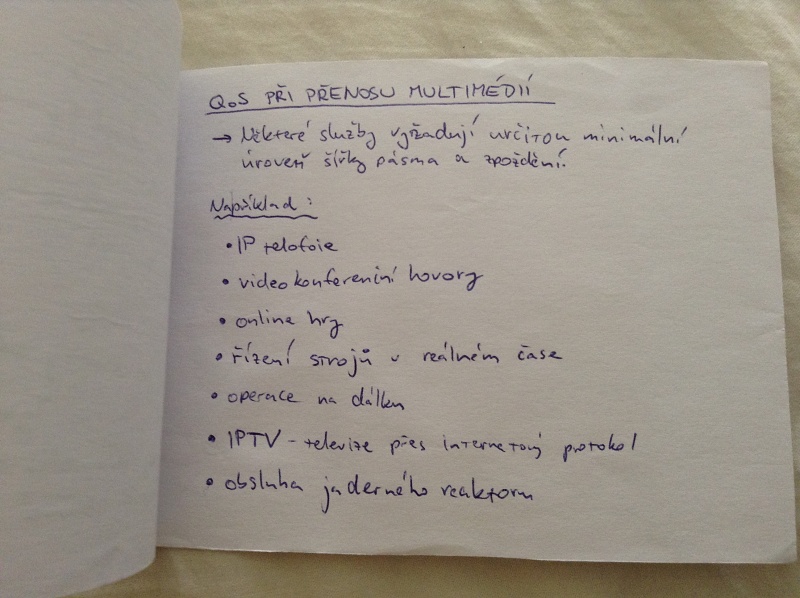 QoS PŘI PŘENOSU MULTIMÉDIÍ
→ Některé služby vyžadují určitou minimální
úroveň šířky pásma a zpoždění.
Například:
• IP telofoie
• videokonferenční hovory
• online hry
• řízení strojů v reálném čase
• operace na dálku
• IPTV - televize přes internetový protokol
• obsluha jaderného reaktoru